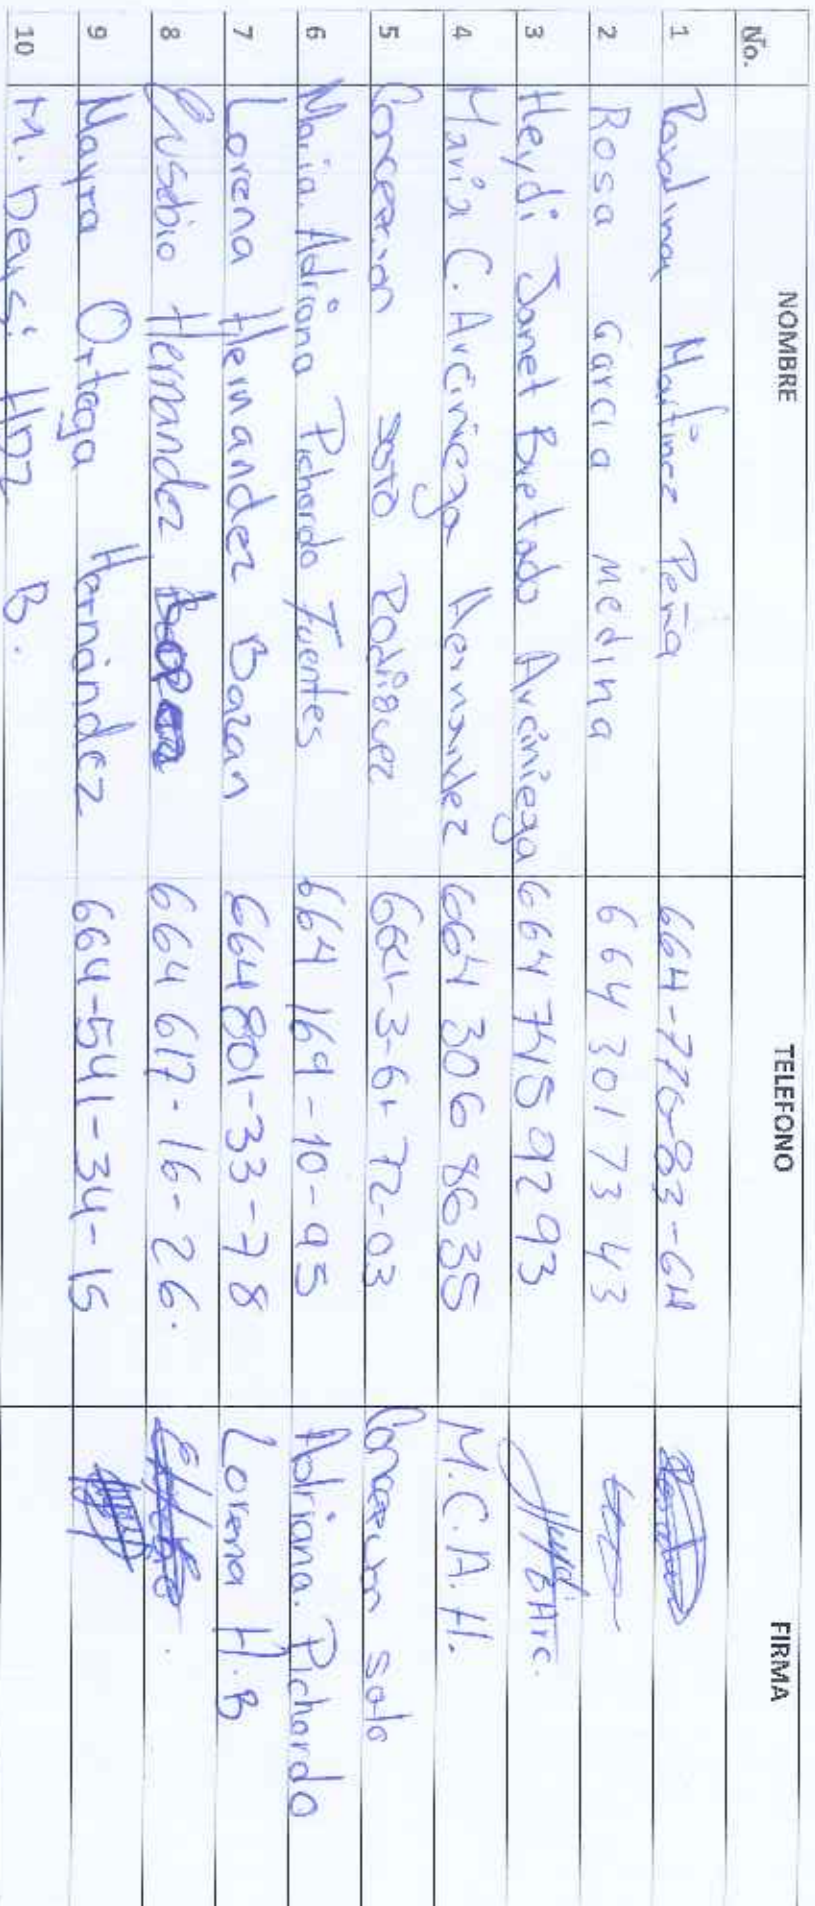 No. NOMBRE TELEFONO FIRMA
1 Martinez Peña 664-776-83-64
2 Rosa Garcia Medina 664 301 73 43
3 Heydi Janet Buetado Arciniega 664 748 92 93
4 Maria C. Arciniega Hernandez 664 306 8635 M.C.A.H.
5 Concepcion Soto Rodriguez 664-3-61-72-03 Concepcion Soto
6 Maria Adriana Pichardo Fuentes 664 169-10-95 Adriana. Pichardo
7 Lorena Hernandez Bazan 664 801-33-78 Lorena H.B
8 Eusebio Hernandez 664 617-16-26.
9 Mayra Ortega Hernández 664-541-34-15
10 M. Deysi HDZ B.